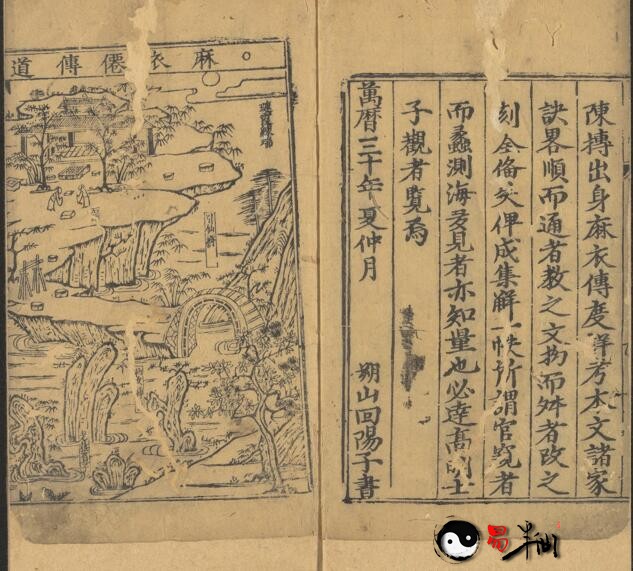 陳摶出身麻衣傳度詳考本文諸家
訣畧順而通者教之文拗而舛者改之
刻全俻矣俾成集解一帙所謂官窺者
而蠡測海多見者亦知量也必逹高明士
子觀者覽焉
萬曆三十年夏仲月 朔山回陽子書
麻衣僊傳道
易半仙